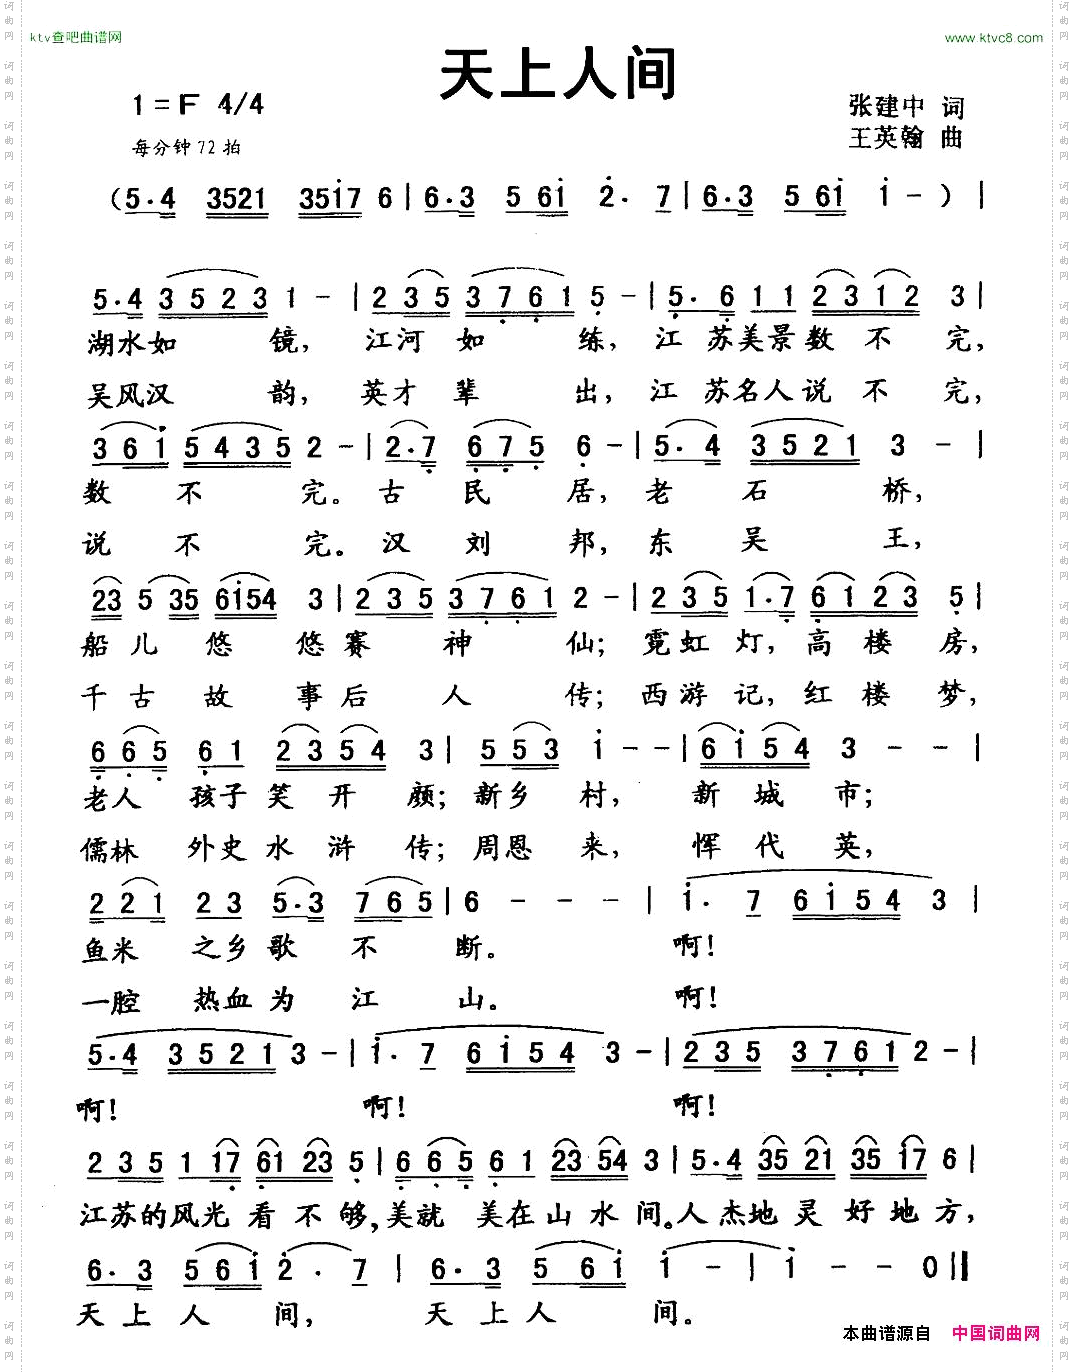 ktv查吧曲谱网
www.ktvc8.com
天上人间
1=F 4/4
张建中 词
每分钟72拍
王英翰 曲
(5·4 3521 3517 6 | 6·3 561 2· 7 | 6·3 561 1 - ) |
5·4 3523 1 - | 235 3761 5 - | 5·6 11 2312 3 |
湖水如 镜， 江河 如 练， 江 苏美景数 不 完，
吴风汉 韵， 英才 辈 出， 江 苏名人说 不 完，
361 5435 2 - | 2·7 675 6 - | 5·4 3521 3 - |
数 不 完。古 民 居， 老 石 桥，
说 不 完。汉 刘 邦， 东 吴 王，
23 5 35 6154 3 | 235 3761 2 - | 235 1·7 6123 5 |
船儿 悠 悠赛 神 仙； 霓虹 灯， 高 楼 房，
千古 故 事后 人 传； 西游 记， 红 楼 梦，
665 61 2354 3 | 553 1 - - | 6154 3 - - |
老人 孩子笑 开 颜； 新乡 村， 新 城 市；
儒林 外史水 浒 传； 周恩 来， 恽 代 英，
221 23 5·3 765 | 6 - - - | 1· 7 6154 3 |
鱼米 之乡歌 不 断。 啊！
一腔 热血为 江 山。 啊！
5·4 3521 3 - | 1· 7 6154 3 - | 235 3761 2 - |
啊！ 啊！ 啊！
235 1 17 61 23 5 | 665 61 23 54 3 | 5·4 35 21 35 17 6 |
江苏的风光 看 不 够，美就 美在山水间。人杰地 灵 好地方，
6·3 561 2· 7 | 6·3 5 61 1 - | 1 - - 0 ||
天上人 间， 天上人 间。
本曲谱源自 中国词曲网